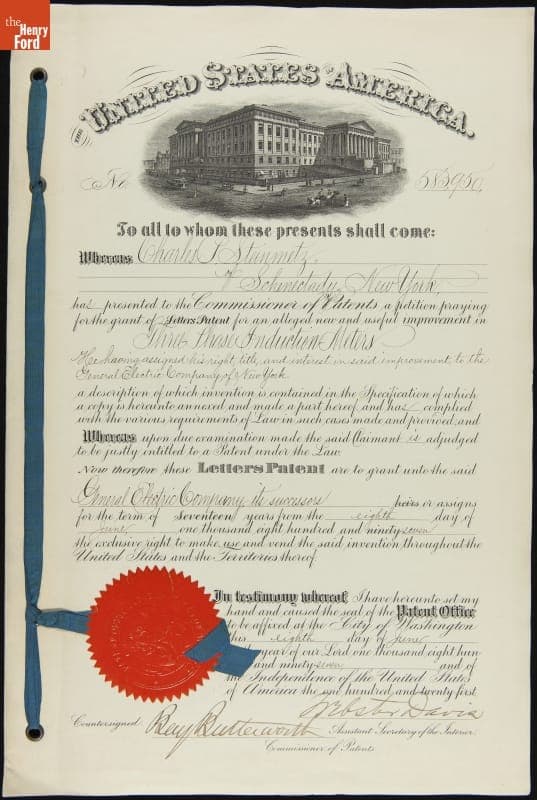 the
Henry
Ford
THE UNITED STATES OF AMERICA.
No. 583950,
To all to whom these presents shall come:
Whereas Charles P. Steinmetz,
of Schenectady, New York,
has presented to the Commissioner of Patents a petition praying
for the grant of Letters Patent for an alleged new and useful improvement in
Three Phase Induction Meters
He having assigned his right, title, and interest in said improvement to the
General Electric Company of New York
a description of which invention is contained in the Specification of which
a copy is hereunto annexed and made a part hereof, and has complied
with the various requirements of Law in such cases made and provided, and
Whereas upon due examination made the said Claimant is adjudged
to be justly entitled to a Patent under the Law.
Now therefore these Letters Patent are to grant unto the said
General Electric Company, its successors heirs or assigns
for the term of Seventeen years from the eighth day of
June one thousand eight hundred and ninety-seven
the exclusive right to make, use and vend the said invention throughout the
United States and the Territories thereof.
In testimony whereof I have hereunto set my
hand and caused the seal of the Patent Office
to be affixed at the City of Washington
this eighth day of June
year of our Lord one thousand eight hun
and ninety-seven and of
the Independence of the United States
of America the one hundred and twenty first
Webster Davis
Countersigned Benj Butterworth Assistant Secretary of the Interior.
Commissioner of Patents